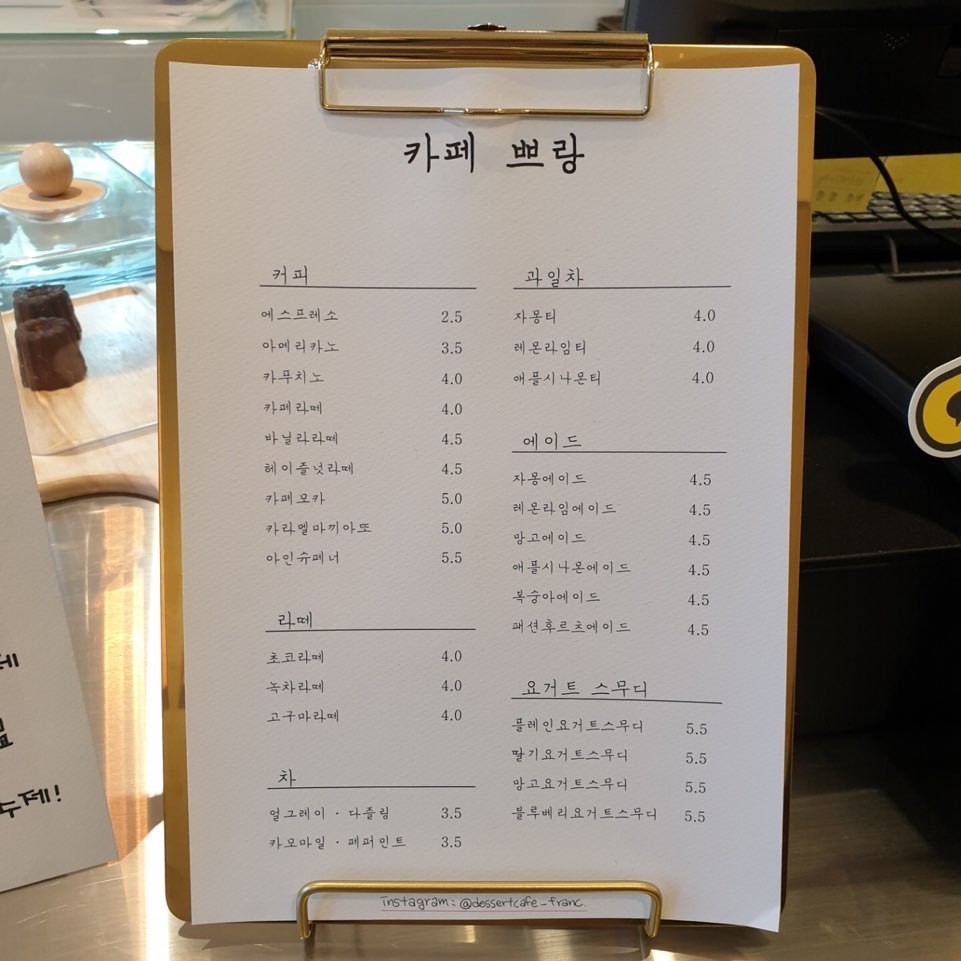 카페 쁘랑
커피
에스프레소 2.5
아메리카노 3.5
카푸치노 4.0
카페라떼 4.0
바닐라라떼 4.5
헤이즐넛라떼 4.5
카페모카 5.0
카라멜마끼아또 5.0
아인슈페너 5.5
라떼
초코라떼 4.0
녹차라떼 4.0
고구마라떼 4.0
차
얼그레이 · 다즐링 3.5
카모마일 · 페퍼민트 3.5
과일차
자몽티 4.0
레몬라임티 4.0
애플시나몬티 4.0
에이드
자몽에이드 4.5
레몬라임에이드 4.5
망고에이드 4.5
애플시나몬에이드 4.5
복숭아에이드 4.5
패션후르츠에이드 4.5
요거트 스무디
플레인요거트스무디 5.5
딸기요거트스무디 5.5
망고요거트스무디 5.5
블루베리요거트스무디 5.5
Instagram: @dessertcafe_franc.